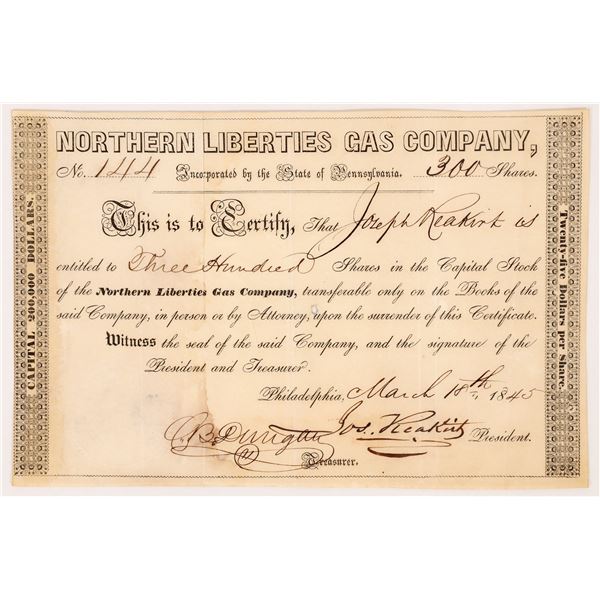 NORTHERN LIBERTIES GAS COMPANY,
No. 144 Incorporated by the State of Pennsylvania. 300 Shares.
This is to Certify, That Joseph Keakirt is
entitled to Three Hundred Shares in the Capital Stock
of the Northern Liberties Gas Company, transferable only on the Books of the
said Company, in person or by Attorney, upon the surrender of this Certificate.
Witness the seal of the said Company, and the signature of the
President and Treasurer.
Philadelphia, March 18th 1845
Jos. Keakirt President.
Treasurer.
CAPITAL 200,000 DOLLARS.
Twenty-five Dollars per Share.